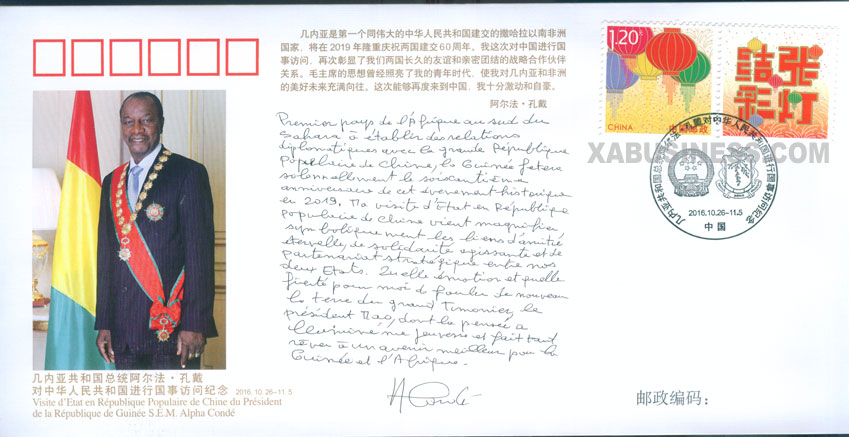 几内亚是第一个同伟大的中华人民共和国建交的撒哈拉以南非洲
国家，将在2019年隆重庆祝两国建交60周年。我这次对中国进行国
事访问，再次彰显了我们两国长久的友谊和亲密团结的战略合作伙伴
关系。毛主席的思想曾经照亮了我的青年时代，使我对几内亚和非洲
的美好未来充满向往。这次能够再度来到中国，我十分激动和自豪。
阿尔法·孔戴
Premier pays de l'Afrique au sud du
Sahara à établir des relations
diplomatiques avec la grande République
Populaire de Chine, la Guinée fêtera
solennellement le soixantième
anniversaire de cet évènement historique
en 2019. Ma visite d'Etat en République
Populaire de Chine vient magnifier
symboliquement les liens d'amitié
éternelle, de solidarité agissante et de
partenariat stratégique entre nos
deux Etats. Quelle émotion et quelle
fierté pour moi de fouler de nouveau
la terre du grand Timonier, le
président Mao, dont la pensée a
illuminé ma jeunesse et fait tant
rêver à un avenir meilleur pour la
Guinée et l'Afrique.
A Condé
几内亚共和国总统阿尔法·孔戴
对中华人民共和国进行国事访问纪念 2016.10.26-11.5
Visite d'Etat en République Populaire de Chine du Président
de la République de Guinée S.E.M. Alpha Condé
1.20元
CHINA 中国邮政
张灯
结彩
几内亚共和国总统阿尔法·孔戴对中华人民共和国进行国事访问纪念
2016.10.26-11.5
中国
XABUSINESS.COM
邮政编码：